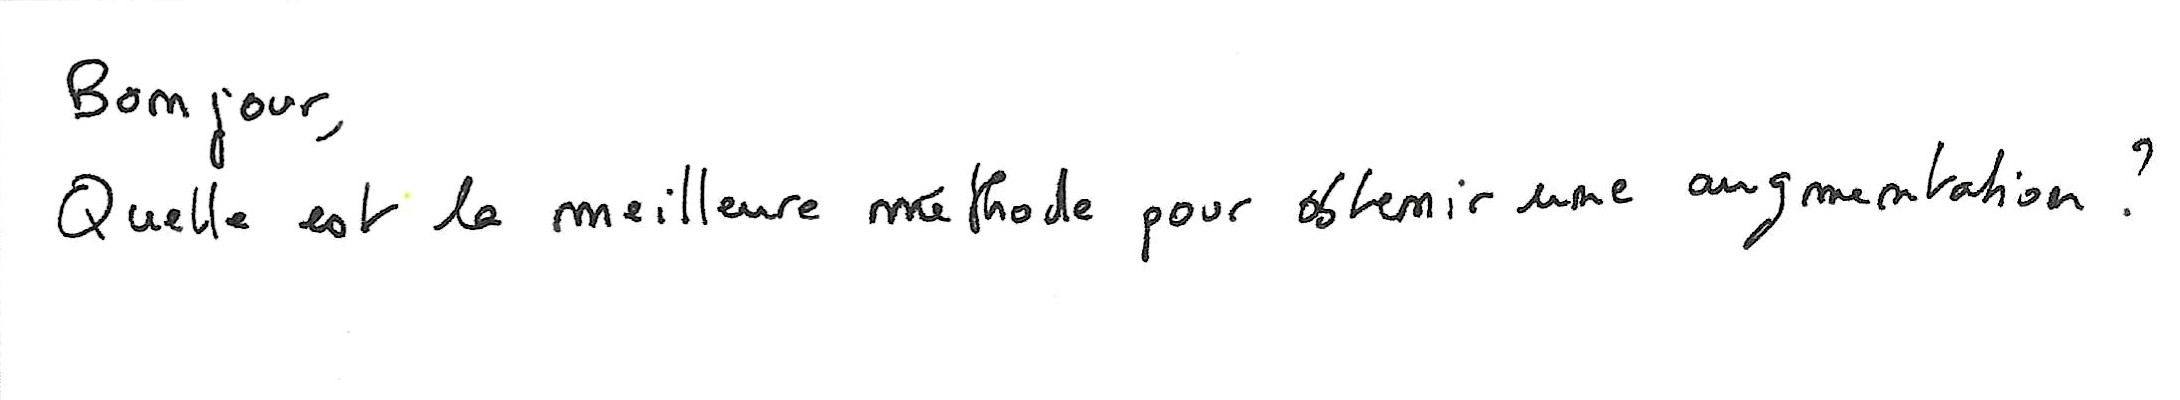 Bonjour,
Quelle est la meilleure méthode pour obtenir une augmentation ?